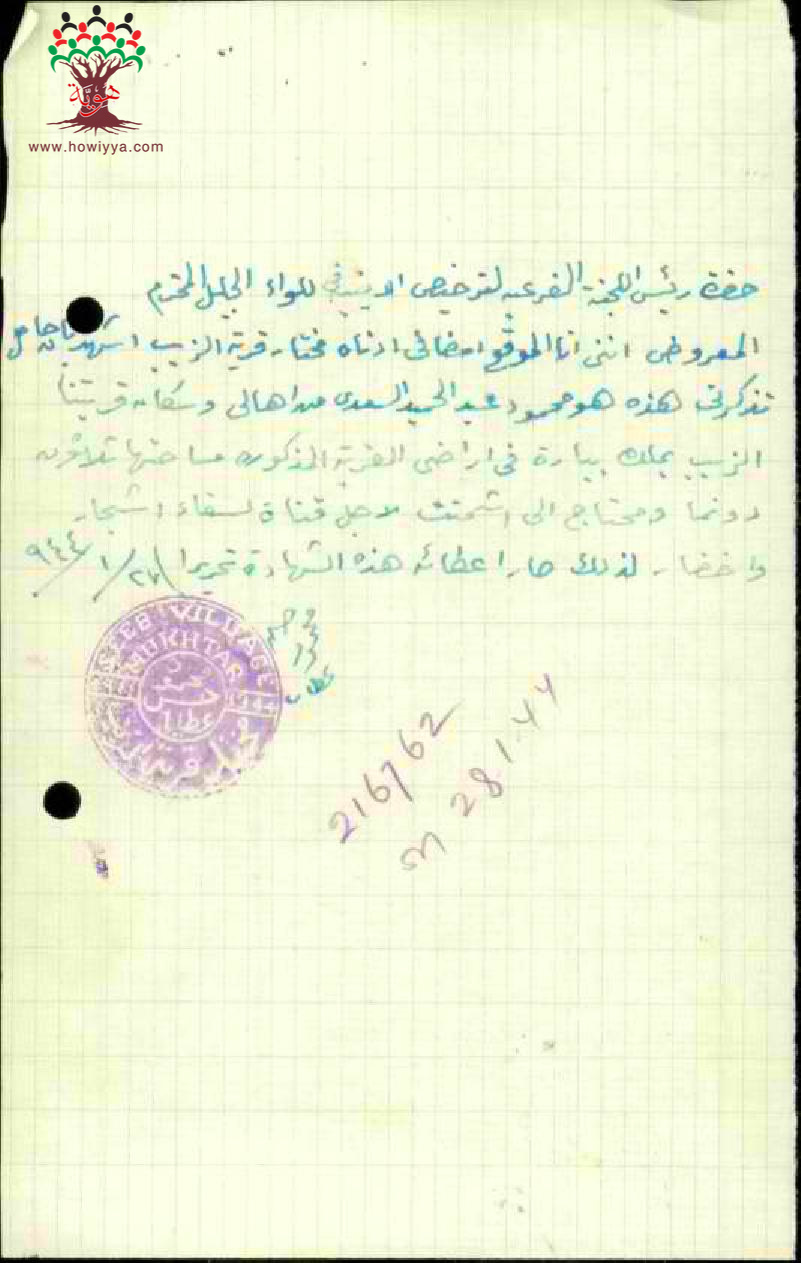 هوية
www.howiyya.com
حضرة رئيس اللجنة الفرعيه لترخيص الابنيه في للواء الجليل المحترم
المعروض انني انا الموقع امضائي ادناه مختار قرية الزيب اشهد بان حامل
تذكرتي هذه هو محمود عبد الحميد السعدي من اهالي وسكان قريتنا
الزيب يملك بيارة في اراضي القرية المذكوره مساحتها ثلاثون
دونما ومحتاج الى اشمنت لاجل قناة لسقاء اشجار
واخضار لذلك صار اعطائه هذه الشهادة تحريرا ٢٧/١/٩٤٤
EZ-ZEEB VILLAGE
MUKHTAR
حسن
عطايا
مختار قرية الزيب
216762
m 28.1.44